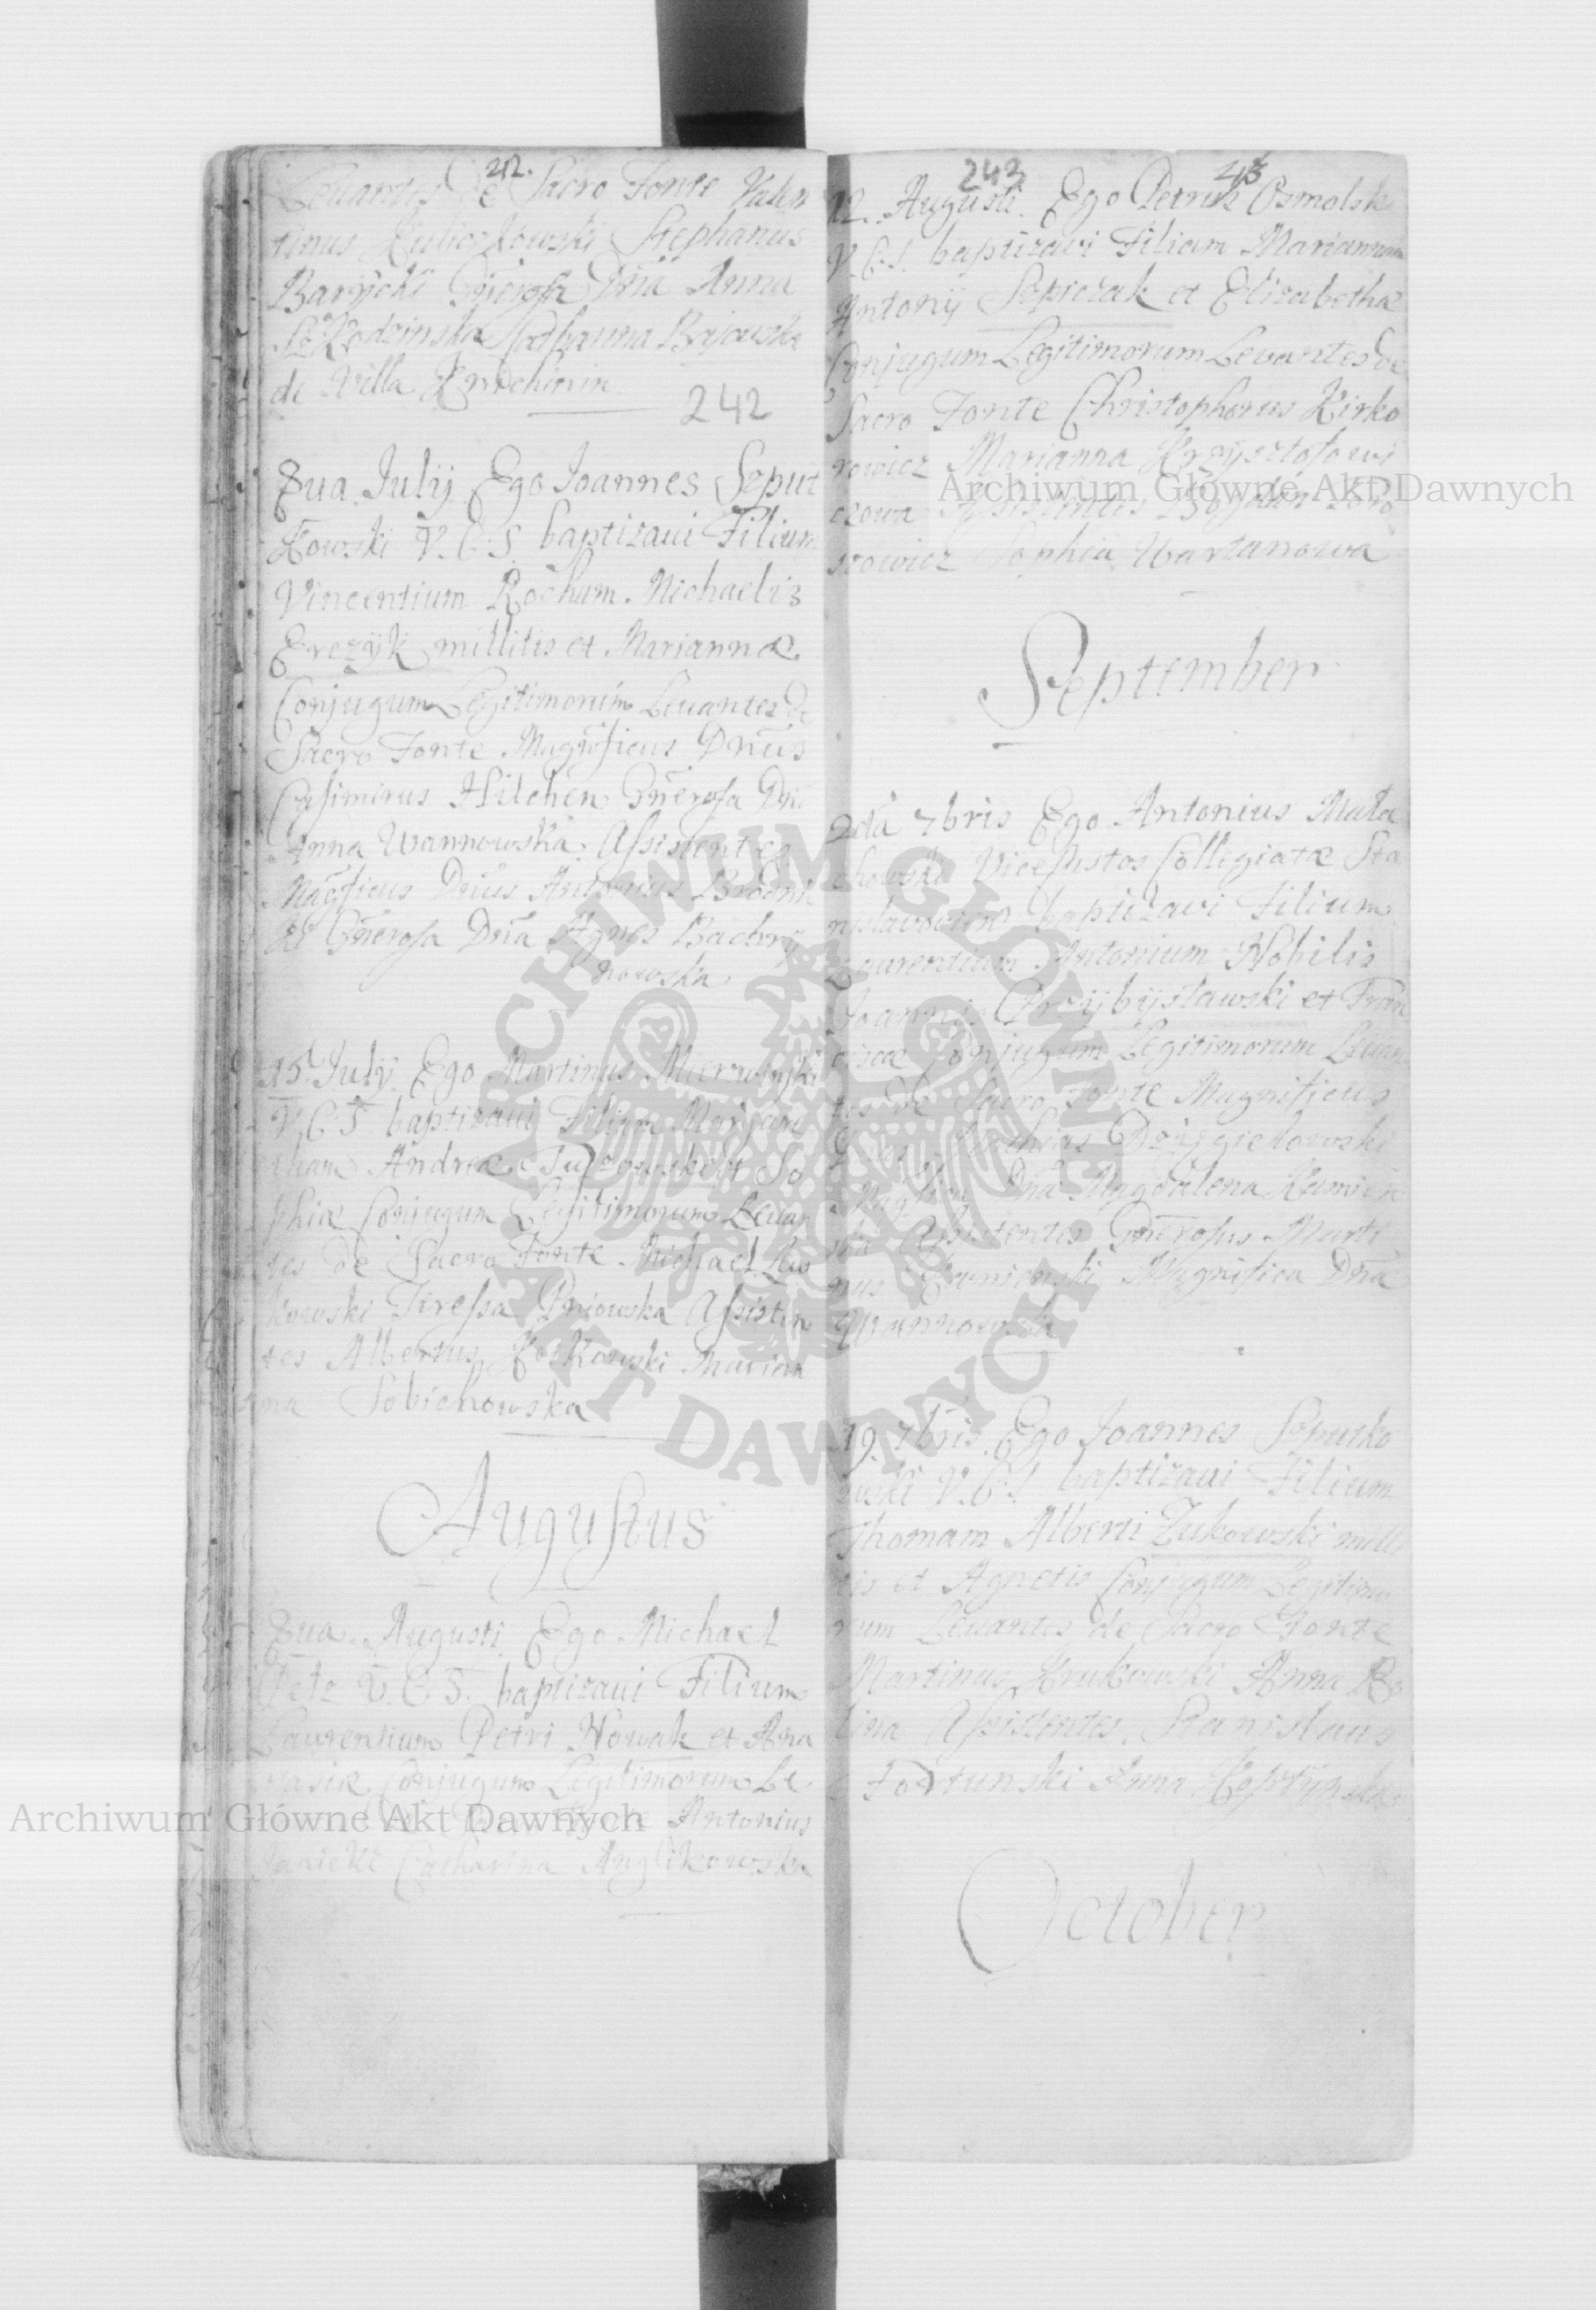 212.
Levantes de Sacro Fonte Valen
tinus Kuliczkowski Stephanus
Barycki Gnerosa Dna Anna
Catharina Bajowska
de Villa
242
8va Julij Ego Joannes Szput
kowski V. C. S. baptizaui Filium
Vincentium Rochum Michaelis
Erczyk millitis et Mariannæ
Conjugum Legitimorum Leuantes de
Sacro Fonte Magnificus Dnus
Casimirus Hilchen Gnerosa Dna
Anna Wannowska Assistentes
Magficus Dnus Antonius
et Gnerosa Dna Agnes Bachry
nowska
15 Julij Ego Martinus
V. C. S. baptizaui Filiam Margare
tham Andreæ et So
phiæ Conjugum Legitimorum Leuan
tes de Sacro Fonte Michael
kowski Teressa Pniowska Assisten
tes Albertus Kotkowski Marian
na Sobichowska
Augustus
8va Augusti Ego Michael
Petz V. C. S. baptizaui Filium
Laurentium Petri Nowak et Ana
stasiæ Conjugum Legitimorum Le
Antonius
Janicki Catharina Anglikowska
243 43
12. Augusti Ego Petrus Osmolski
V. C. S. baptizavi Filiam Mariannam
Antonij Szpiczak et Elizabethæ
Conjugum Legitimorum Levantes de
Sacro Fonte Christophorus Kirko
rowicz Marianna Krzysztofowi
czowa Assistentes Bogdan Zoro
Sophia Wartanowa
September
2da 7bris Ego Antonius Mala
chowski ViceCustos Collegiatæ Sta
nislavovien baptizavi Filium
Laurentium Antonium Nobilis
Joannis Przybysławski et Fran
ciscæ Conjugum Legitimorum Levan
tes de Sacro Fonte Magnificus
Dnus Mathias
Dna Magdalena Kamień
ska Assistentes Gnerosus Marti
nus Kamienski Magnifica Dna
Wannowska
19 7bris Ego Joannes Szputko
wski V. C. S. baptizaui Filium
Thomam Alberti Zukowski milli
tis et Agnetis Conjugum Legitimo
rum Leuantes de Sacro Fonte
Martinus Krukowski Anna
lina Assistentes Stanislaus
Fortunski Anna
October
Archiwum Główne Akt Dawnych
Archiwum Główne Akt Dawnych
ARCHIWUM GŁÓWNE AKT DAWNYCH